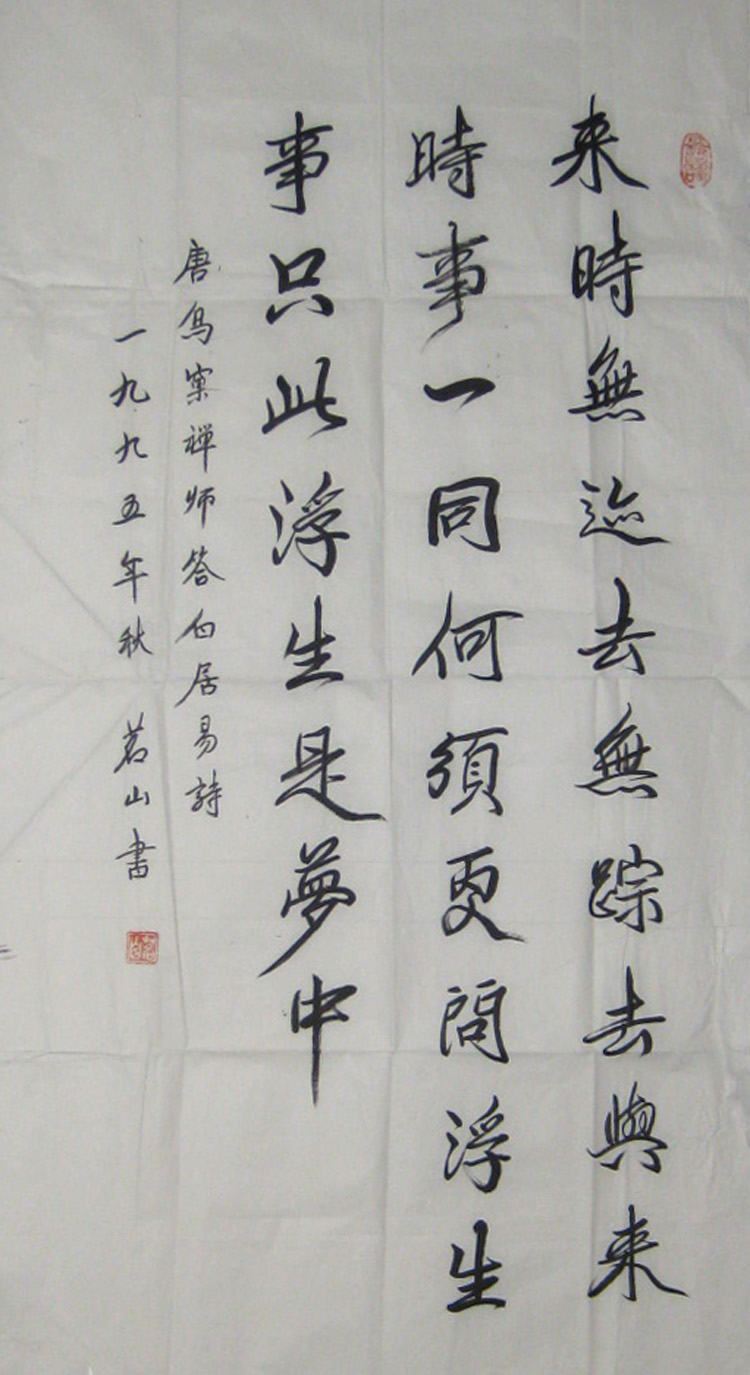 来時無迹去無踪去與来
時事一同何須更問浮生
事只此浮生是夢中
唐鸟窠禅师答白居易詩
一九九五年秋 茗山書